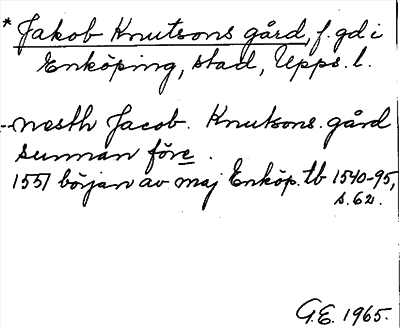 * Jakob Knutsons gård, f. gd i
Enköping, stad, Upps. l.
--nesth Jacob. Knutsons. gård
sunnan före.
1551 början av maj Enköp. tb 1540-95,
s. 62.
G.E. 1965.